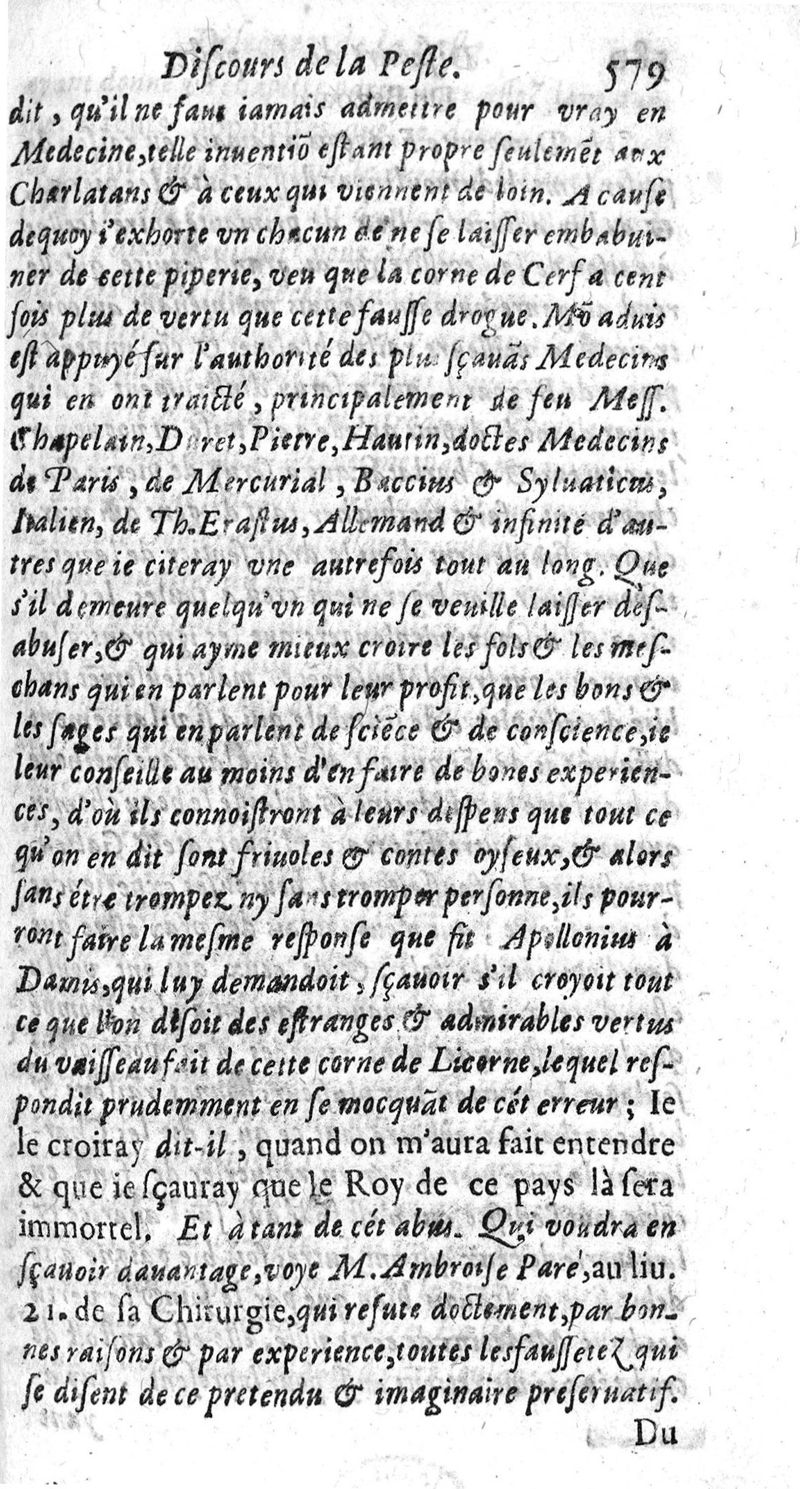 Diſcours de la Peſte. 579
dit, qu'il ne faut iamais admettre pour vray en
Medecine, telle inuentiõ eſtant propre ſeulemẽt aux
Charlatans & à ceux qui viennent de loin. A cauſe
dequoy i'exhorte vn chacun de ne ſe laiſſer embabui-
ner de cette piperie, veu que la corne de Cerf a cent
fois plus de vertu que cette fauſſe drogue. Mõ aduis
eſt appuyé ſur l'authorité des plus ſçauãs Medecins
qui en ont traicté, principalement de feu Meſſ.
Chapelain, Duret, Pietre, Hautin, doctes Medecins
de Paris, de Mercurial, Baccius & Syluaticus,
Italien, de Th. Eraſtus, Allemand & infinité d'au-
tres que ie citeray vne autrefois tout au long. Que
s'il demeure quelqu'vn qui ne ſe veuille laiſſer deſ-
abuſer, & qui ayme mieux croire les fols & les meſ-
chans qui en parlent pour leur profit, que les bons &
les ſages qui en parlent de ſciẽce & de conſcience, ie
leur conſeille au moins d'en faire de bones experien-
ces, d'où ils connoiſtront à leurs deſpens que tout ce
qu'on en dit ſont friuoles & contes oyſeux, & alors
ſans étre trompez ny ſans tromper perſonne, ils pour-
ront faire la meſme reſponſe que fit Apollonius à
Damis, qui luy demandoit, ſçauoir s'il croyoit tout
ce que l'on diſoit des eſtranges & admirables vertus
du vaiſſeau fait de cette corne de Licorne, lequel reſ-
pondit prudemment en ſe mocquãt de cét erreur ; Ie
le croiray dit-il, quand on m'aura fait entendre
& que ie ſçauray que le Roy de ce pays là ſera
immortel. Et à tant de cét abus. Qui voudra en
ſçauoir dauantage, voye M. Ambroiſe Paré, au liu.
21. de ſa Chirurgie, qui refute doctement, par bon-
nes raiſons & par experience, toutes les fauſſetez qui
ſe diſent de ce pretendu & imaginaire preſeruatif.
Du